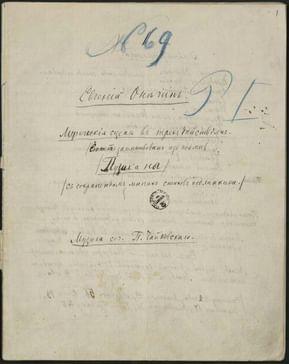 1
№ 69
Евгеній Онѣгинъ
Лирическія сцены въ трехъ дѣйствіяхъ.
Пушкина
/съ сохраненіемъ многихъ стиховъ подлинника./
Музыка соч. П. Чайковскаго.